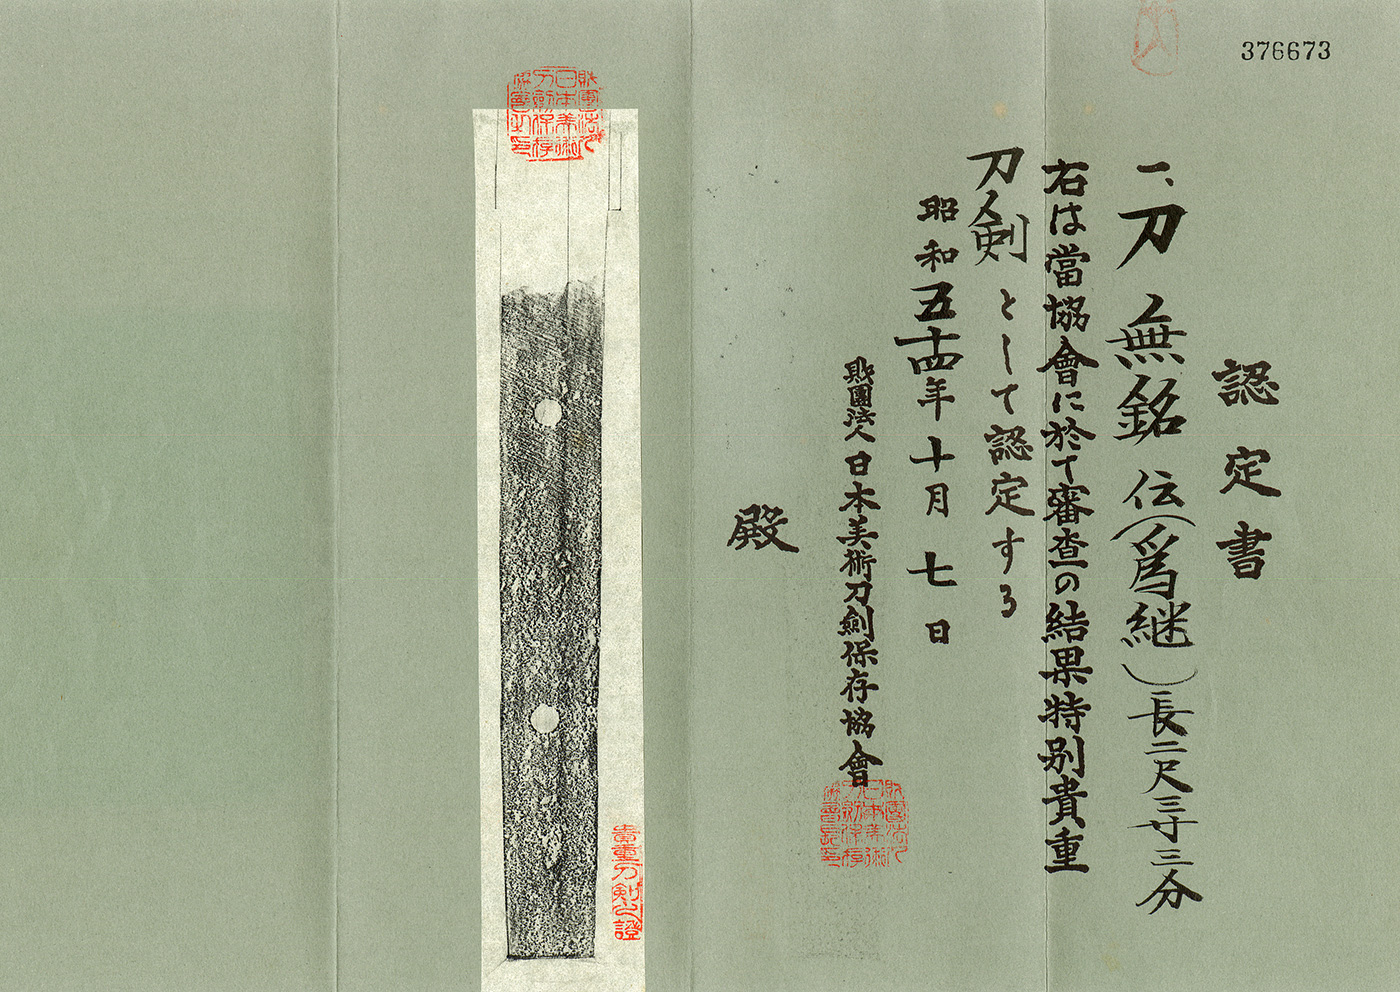 376673
認定書
一、刀 無銘 伝(爲継)長二尺三寸三分
右は當協會に於て審査の結果特別貴重
刀剣として認定する
昭和五十四年十月七日
財團法人日本美術刀劍保存協會
殿
貴重刀剣之證